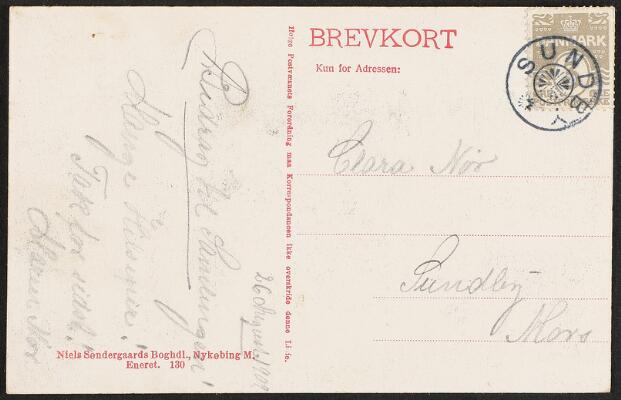 BREVKORT
Kun for Adressen:
DANMARK
SUNDBY
Clara Nør
Sundby
Mors
Helge Postvæsnets Forordning maa Korrespondancen ikke overskride denne Linie.
26 August 1909
Bidrag til Samlingen!
Mange Hilsener!
Tak for sidst!
Maren Nør
Niels Søndergaards Boghdl., Nykøbing M.
Eneret. 130